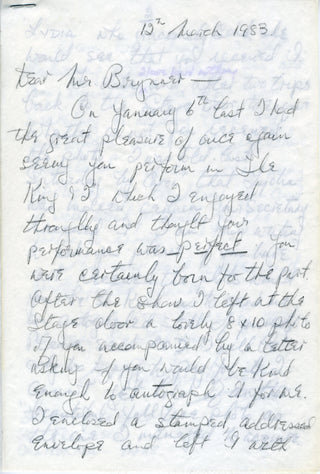 12th March 1983
Dear Mr Brynner —
On January 6th last I had
the great pleasure of once again
seeing you perform in The
King & I which I enjoyed
throughly and thought your
performance was perfect you
were certainly born for the part
After the show I left at the
Stage door a lovely 8x10 photo
of you accompanied by a letter
asking if you would be kind
enough to autograph it for me.
I enclosed a stamped, addressed
envelope and left it with